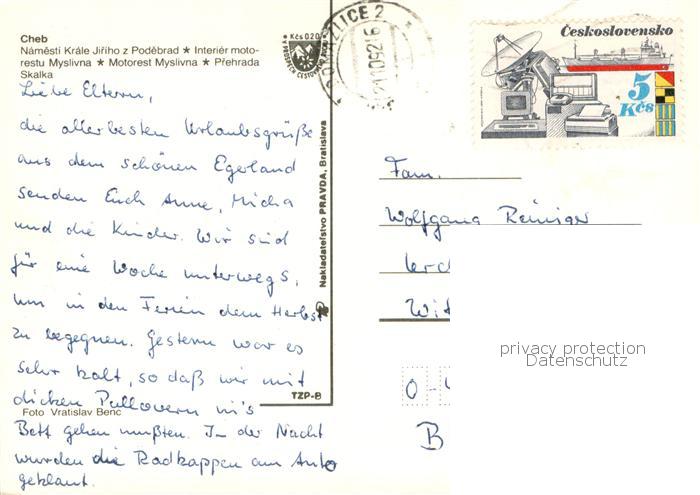 Cheb
Náměstí Krále Jiřího z Poděbrad ★ Interiér moto-
restu Myslivna ★ Motorest Myslivna ★ Přehrada
Skalka
Liebe Eltern,
die allerbesten Urlaubsgrüße
aus dem schönen Egerland
senden Euch Anne, Micha
und die Kinder. Wir sind
für eine Woche unterwegs,
um in den Ferien dem Herbst
zu begegnen. Gestern war es
sehr kalt, so daß wir mit
dicken Pullovern in's
Bett gehen mußten. In der Nacht
wurden die Radkappen am Auto
geklaut.
Foto Vratislav Benc
Kčs 0,20
Nakladateľstvo PRAVDA, Bratislava
TZP-B
Československo
5
Kčs
Fam.
Wolfgang Reiniger
Wit
O-4
B
privacy protection
Datenschutz